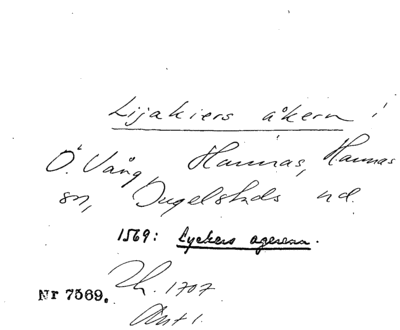 Lijakiers åkern i
Ö. Vång, Hannas, Hannas
sn, Ingelstads hd.
1569: Lyckers agerenn.
Nr 7569. Lh. 1707
Ant 1.